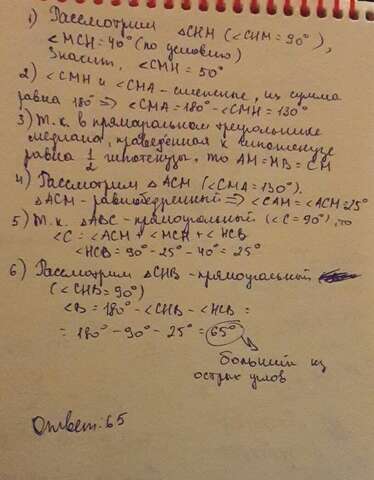 1) Рассмотрим △CHM (∠CHM = 90°),
∠MCH = 40° (по условию)
Значит, ∠CMH = 50°
2) ∠CMH и ∠CMA - смежные, их сумма
равна 180° ⇒ ∠CMA = 180° - ∠CMH = 130°
3) Т.к. в прямоугольном треугольнике
медиана, проведенная к гипотенузе
равна 1/2 гипотенузы, то AM = MB = CM
4) Рассмотрим △ACM (∠CMA = 130°).
△ACM - равнобедренный ⇒ ∠CAM = ∠ACM = 25°
5) Т.к. △ABC - прямоугольный (∠C = 90°), то
∠C = ∠ACM + ∠MCH + ∠HCB
∠HCB = 90° - 25° - 40° = 25°
6) Рассмотрим △CHB - прямоугольный
(∠CHB = 90°)
∠B = 180° - ∠CHB - ∠HCB =
= 180° - 90° - 25° = 65°
больший из
острых углов
Ответ: 65